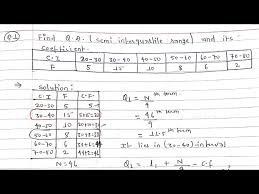 Q.1 Find Q.D. (semi interquartile range) and its
coefficient.
C.I 20-30 30-40 40-50 50-60 60-70 70-80
F 5 15 10 8 6 2
→ solution:
C.I F C.F.
20-30 5 5
30-40 15 5+15=20
40-50 10
50-60 8
60-70 6
70-80 2
N=46
Q₁ = N/4 th term
= 46/4 th term
= 11.5 th term
It lies in (30-40) interval
Q₁ = l₁ + N/4 - c.f.